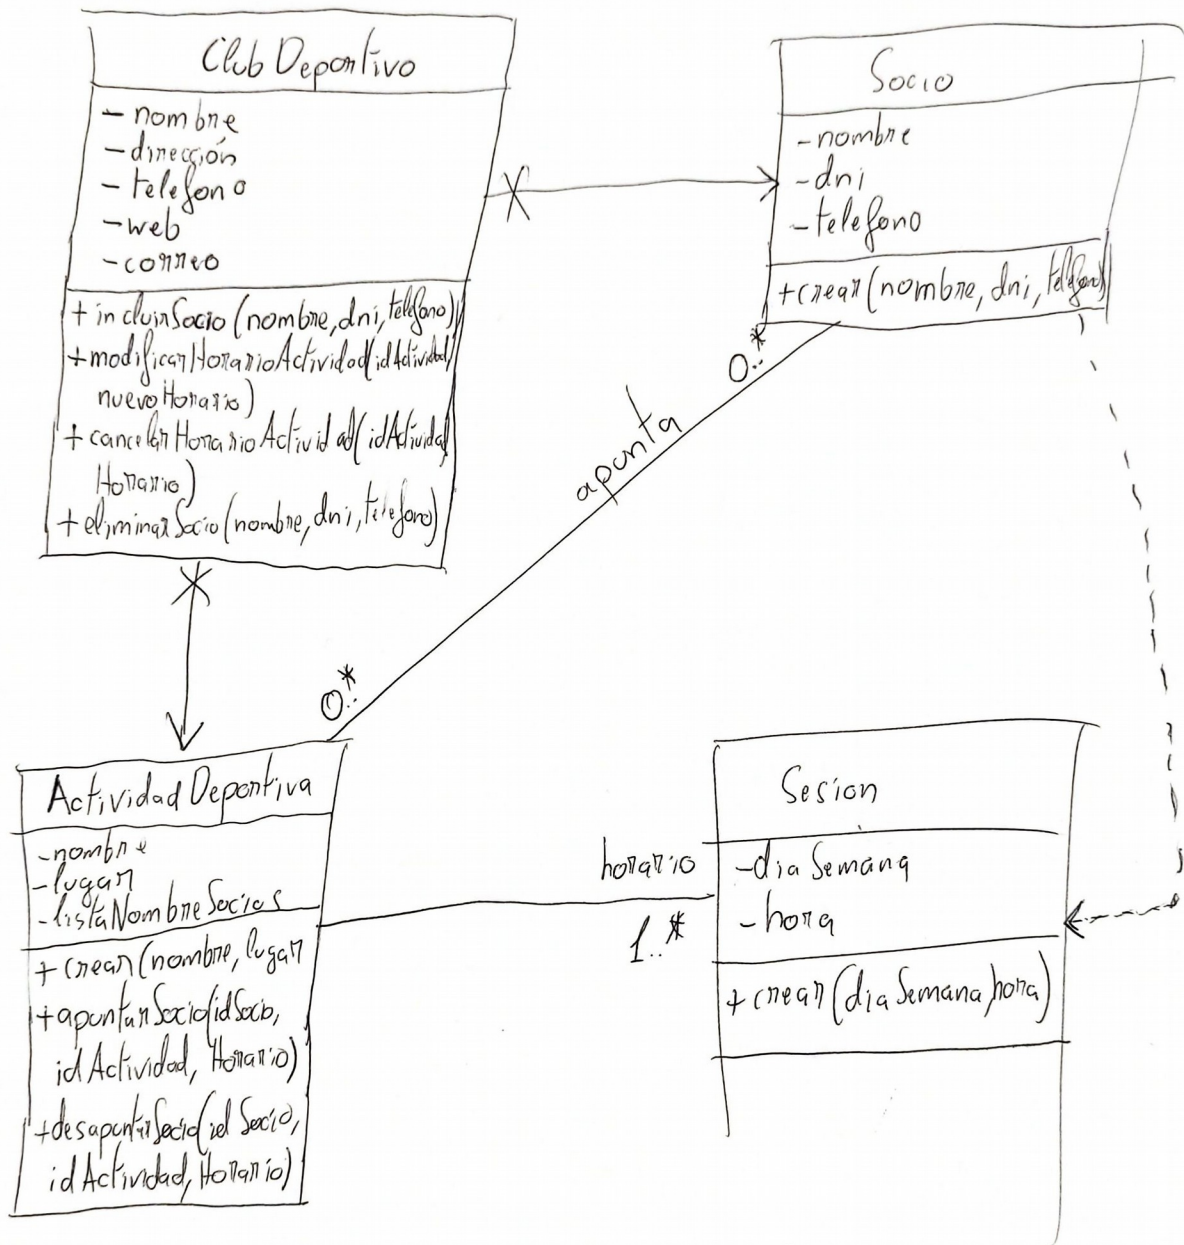 Club Deportivo
- nombre
- dirección
- telefono
- web
- correo
+ incluirSocio (nombre, dni, telefono)
+ modificarHorarioActividad (idActividad,
nuevoHorario)
+ cancelarHorarioActividad (idActividad,
Horario)
+ eliminarSocio (nombre, dni, telefono)
Socio
- nombre
- dni
- telefono
+ crear (nombre, dni, telefono)
0..*
apunta
0..*
Actividad Deportiva
- nombre
- lugar
- listaNombreSocios
+ crear (nombre, lugar
+ apuntarSocio (idSocio,
idActividad, Horario)
+ desapuntarSocio (idSocio,
idActividad, Horario)
horario
1..*
Sesion
- diaSemana
- hora
+ crear (diaSemana, hora)